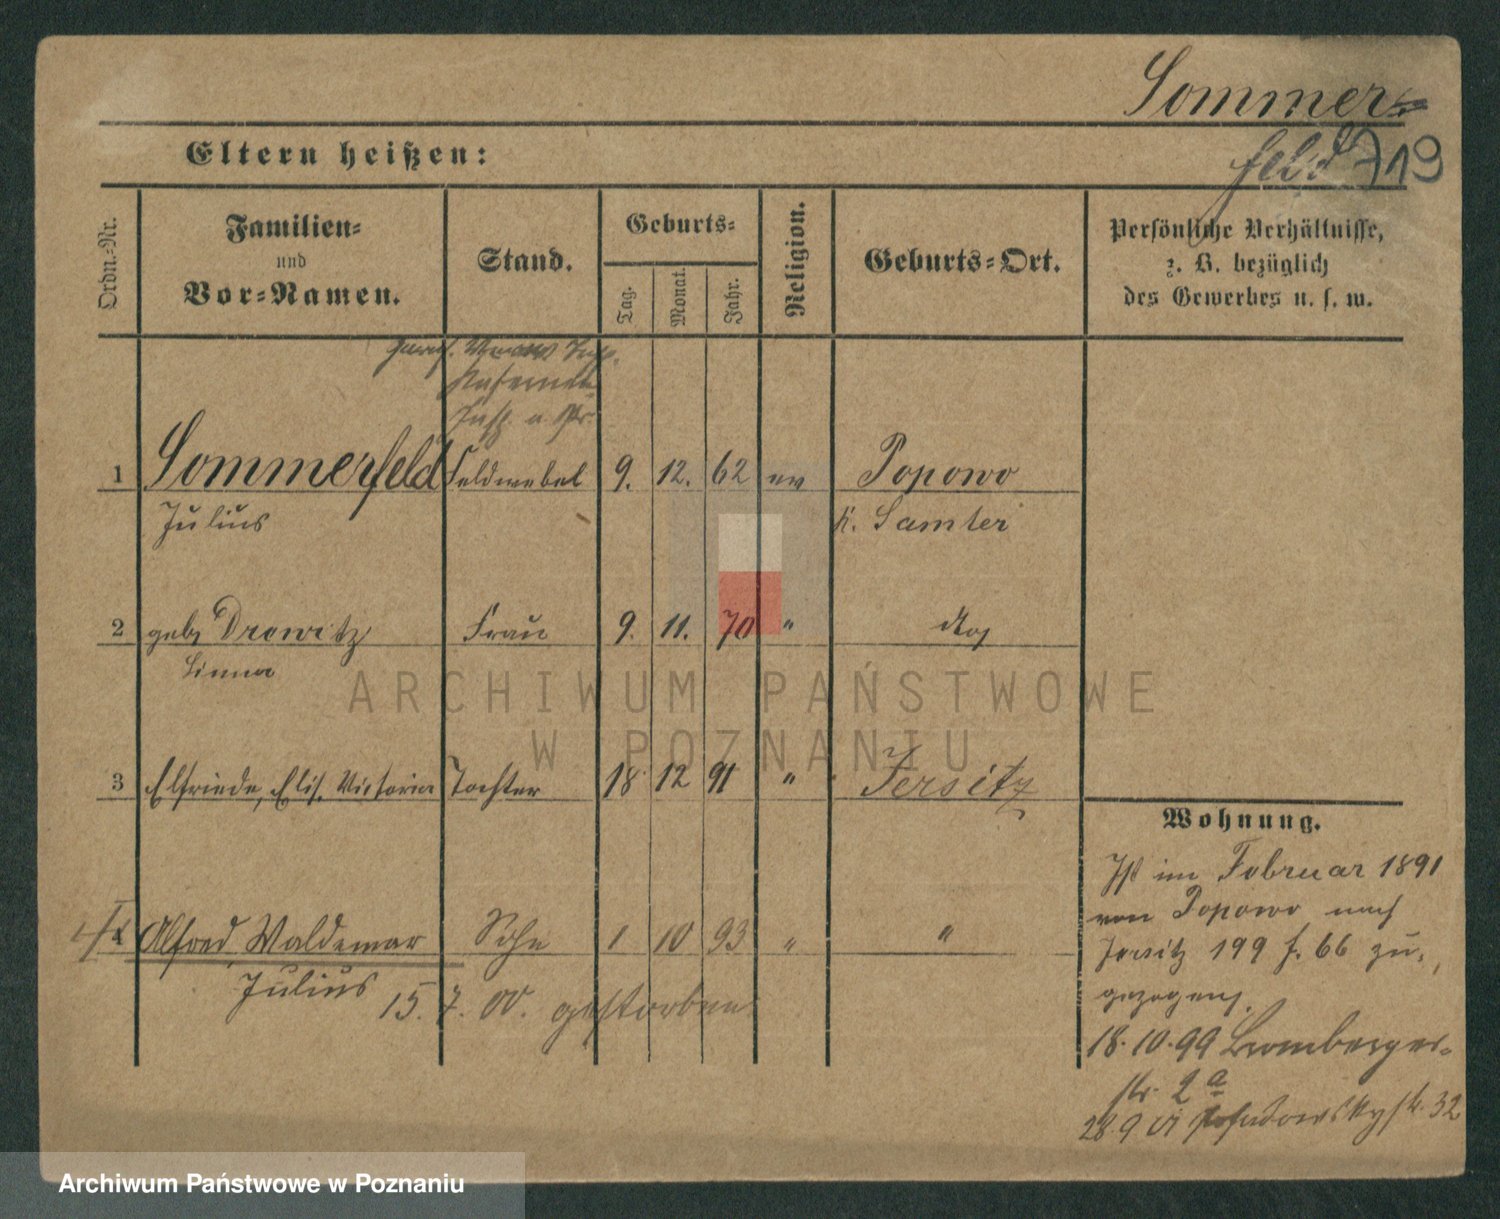 Sommer-
feld 719
Eltern heißen:
Ordn.-Nr.
Familien-
und
Vor-Namen.
Stand.
Geburts-
Tag.
Monat.
Jahr.
Religion.
Geburts-Ort.
Persönliche Verhältnisse,
z. B. bezüglich
des Gewerbes u. s. w.
Kasernen
Insp. a. Pr.
1 Sommerfeld Feldwebel 9. 12. 62 ev Popowo
Julius K. Samter
2 geb Drewitz Frau 9. 11. 70 "
3 Elfriede, Elis. Victoria Tochter 18 12 91 " Jersitz
Wohnung.
Ist im Februar 1891
von Popowo nach
Jersitz 199 f. 66 zu-
gezogen.
4 Alfred Waldemar Sohn 1 10 93 " "
Julius
15. 7. 00. gestorben
18.10.99 Bromberger-
str. 2a
28.9 01 Posadowskystr. 32
ARCHIWUM PAŃSTWOWE
W POZNANIU
Archiwum Państwowe w Poznaniu